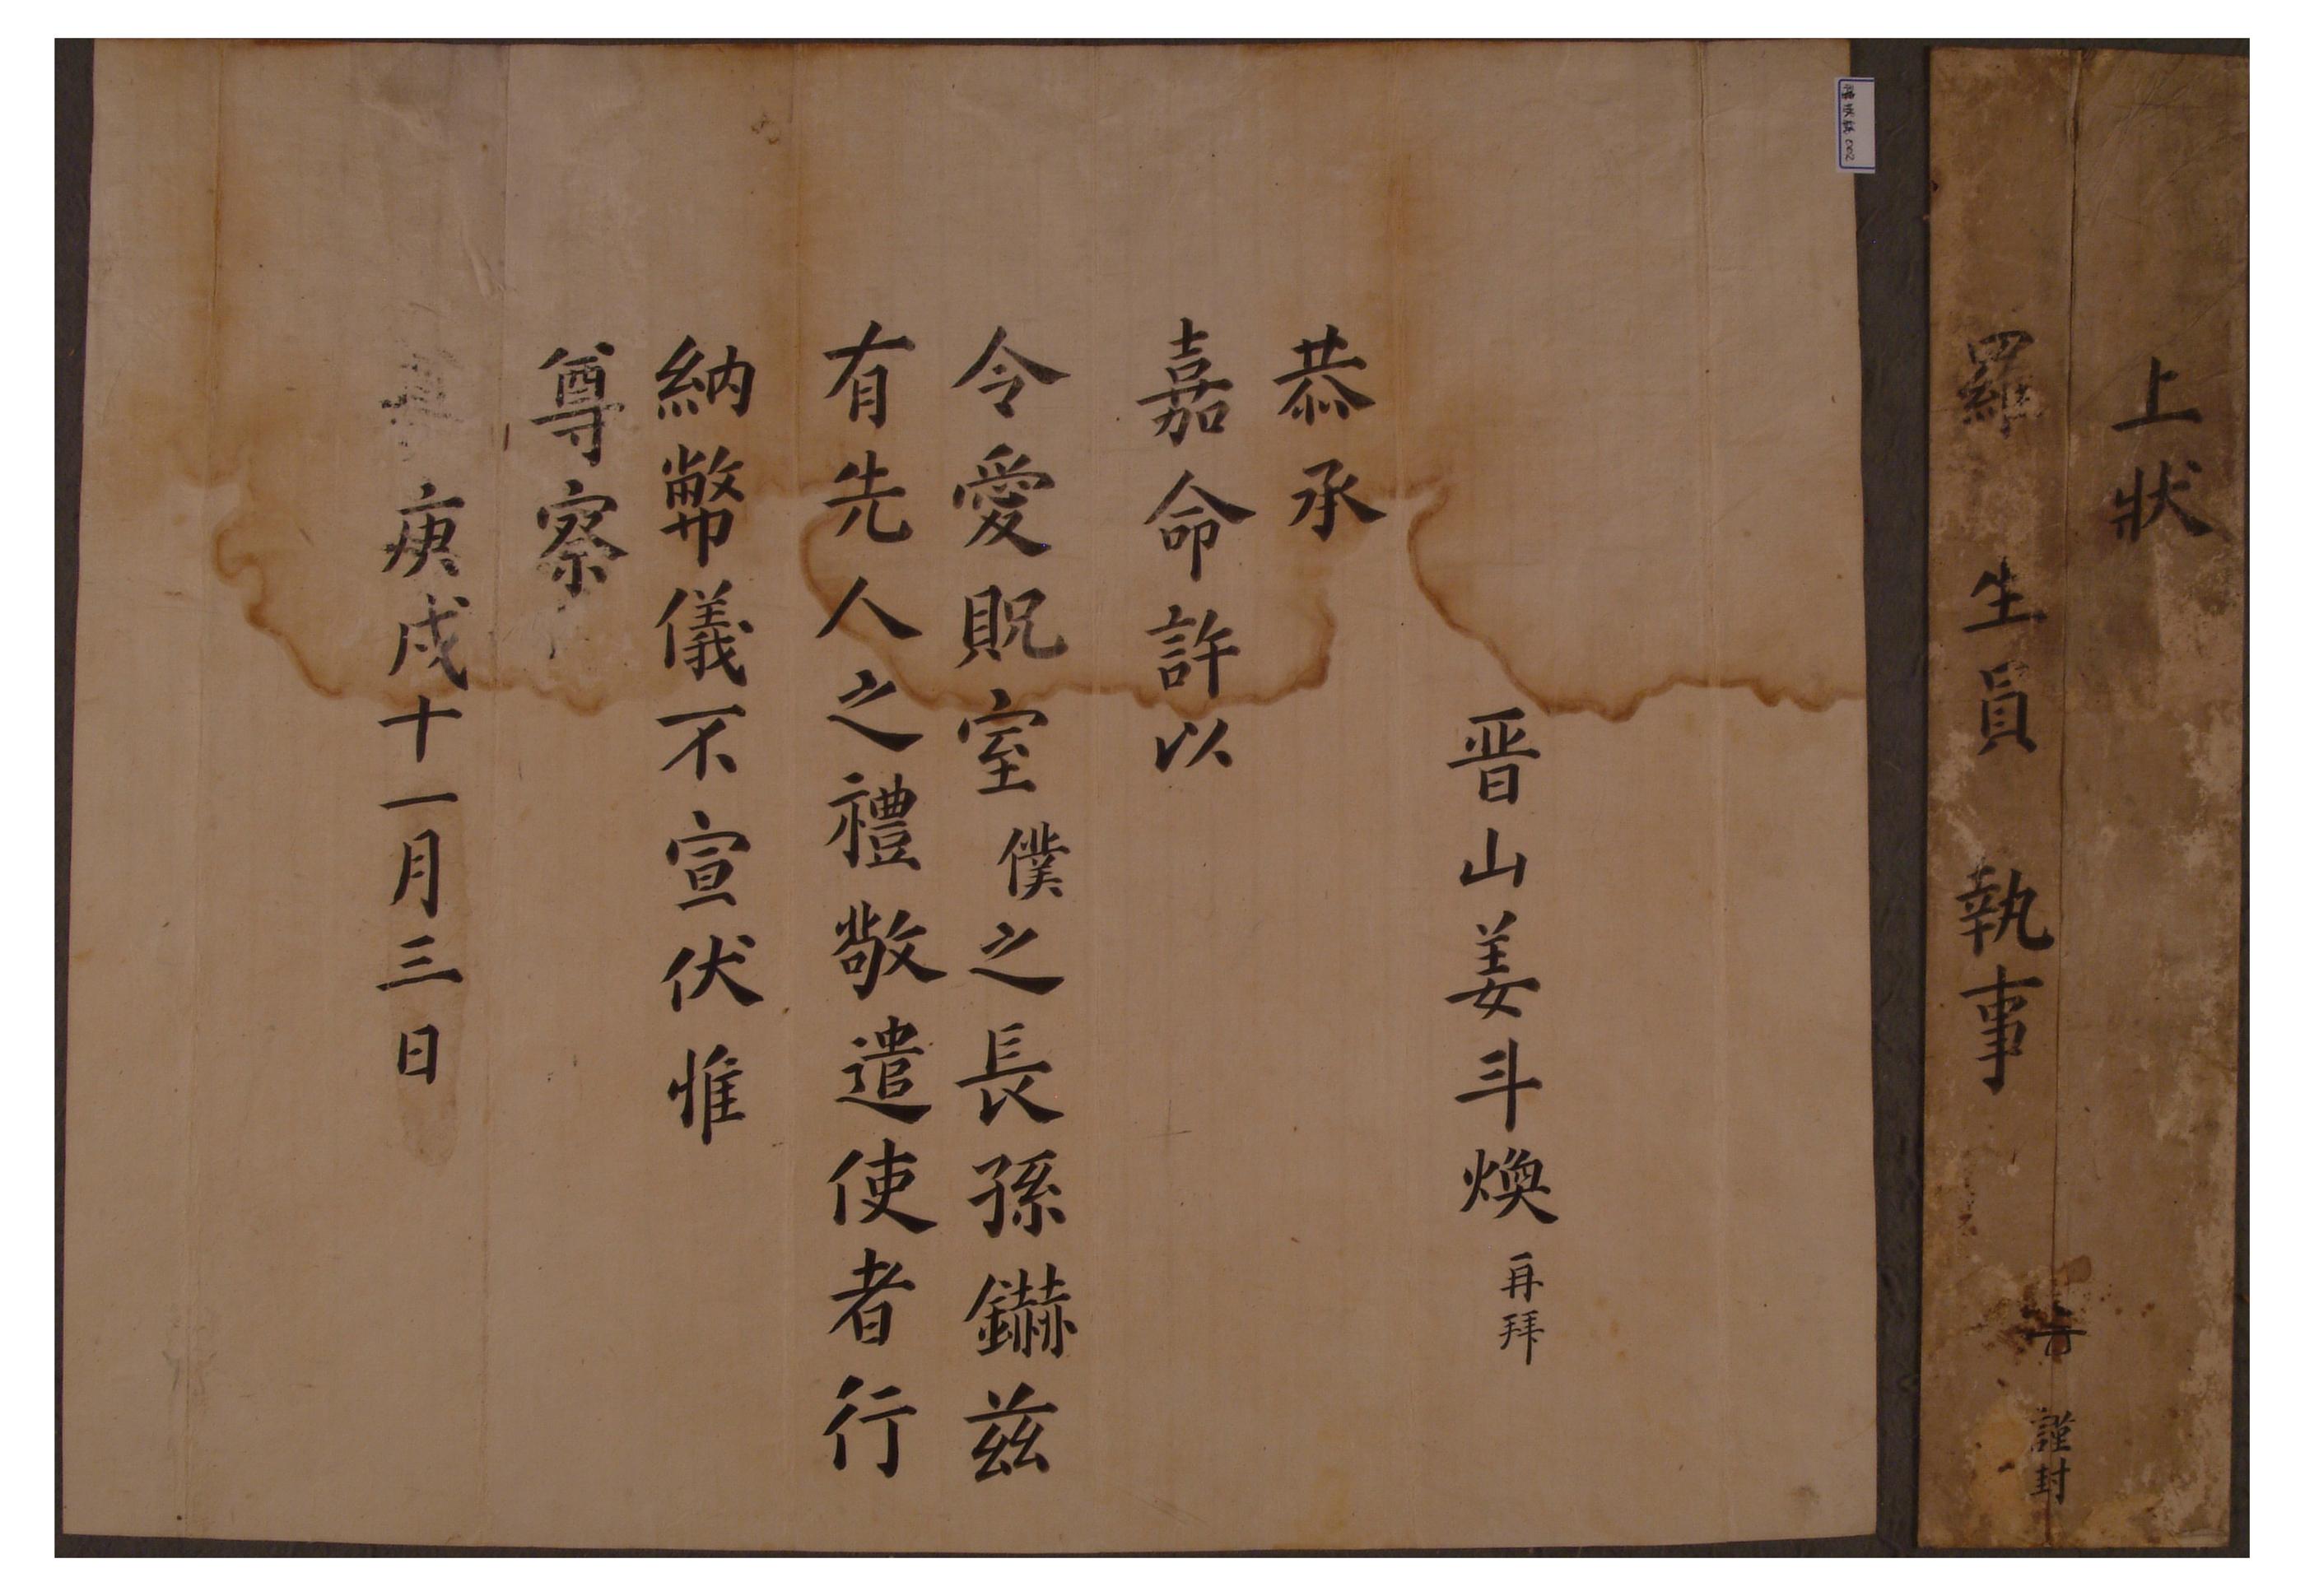 上狀
羅生員 執事
謹封
晋山姜斗煥 再拜
恭承
嘉命許以
令愛貺室僕之長孫鏀玆
有先人之禮敬遣使者行
納幣儀不宣伏惟
尊察
庚戌十一月三日